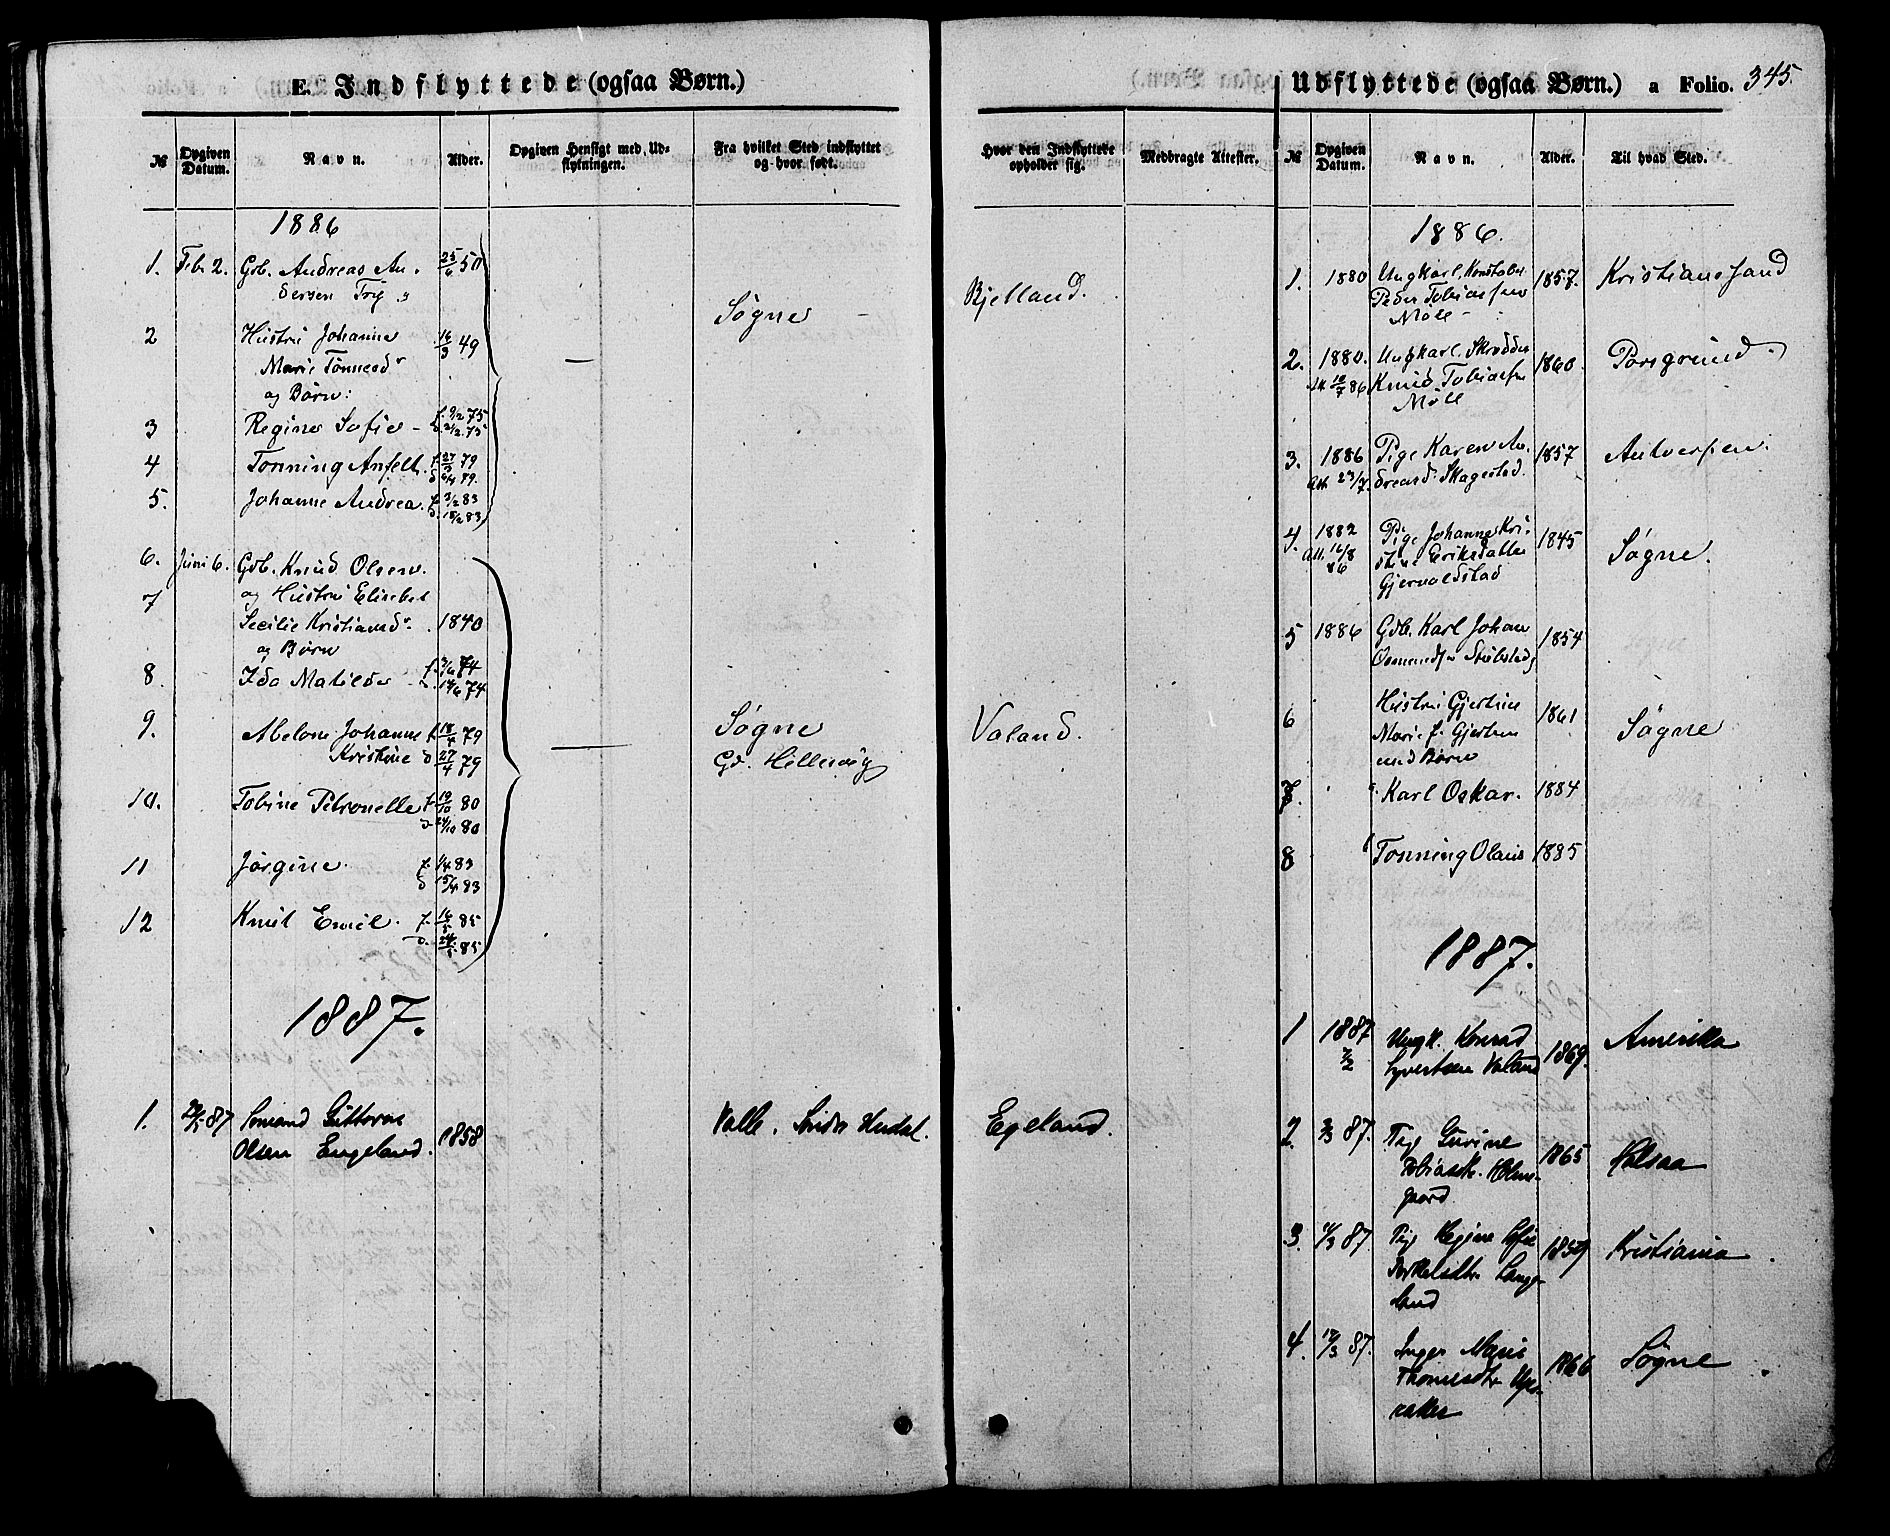 E. Indflyttede (ogsaa Børn.)
№
Opgiven Datum.
Navn.
Alder.
Opgiven Hensigt med Udflytningen.
Fra hvilket Sted indflyttet og hvor født.
Hvor den Indflyttede opholder sig.
Medbragte Attester.
1886
1. Feb. 2. Gdb. Andreas An- 25/6 50
dersen Trij
Søgne Bjelland.
2 Hustru Johanne 16/3 49
Marie Tønnesdr
og Børn:
3 Regine Sofie f. 9/2 75
4 Tønning Anfelt f. 27/3 79
d. 6/4 79.
5. Johanne Andrea f. 3/2 83
d. 18/2 83
6. Juni 6. Gdb. Knud Olsen
7 og Hustru Elisabet
Secilie Kristiansdr. 1840
og Børn
8. Ida Matilde f. 3/6 74
d. 14/6 74
9. Abelone Johanne f. 18/4 79
Kristine d 27/4 79
Søgne Valand.
Gd. Hillevåg
10. Tobine Petronelle f. 19/10 80
d 24/10 80
11 Jørgine. f. 1/4 83
d 15/4 83
12 Knut Emil. f. 16/5 85
d. 24/5 85
1887.
1. 87 Guttorm
Olsen Engeland. 1858 Valle. Egeland.
Udflyttede (ogsaa Børn.) a Folio. 345.
№
Opgiven Datum.
Navn.
Alder.
Til hvad Sted.
1886.
1. 1880 Ungkarl, Konstabel 1857. Kristianssand
Peder Tobiassen
Møll
2. 1880. Ungkarl. Skrædder 1860 Porsgrund.
Att. 10/7 86 Knud Tobiassen
Møll
3. 1886 Pige Karen An- 1857 Antverpen.
Att. 23/7. dreasdr Skagestad.
4. 1882 Pige Johanne Kri- 1845 Søgne.
Att. 16/8 stine Eriksdatter
86 Gjervoldstad
5 1886 Gdb. Karl Johan 1854
Osmundsen Stubstad
6 Hustru Gjertine 1861 Søgne
Marie f. Gjertsen
und Børn
7. Karl Oskar. 1884
8 Tønning Olaus 1885
1887.
1 1887 Ungk. Konrad 1869. Amerika
7/2 Syvertsen Valand
2. 3/3 87. Pige Gurine 1865 Halsaa
Tobiasdr. Holme-
gaard.
3. 11/3 87. Pige Regine Sofie 1859 Kristiania
Torkelsdtr. Lange-
land
4. 17/3 87. Inger Marie 1866 Søgne
Thomesdtr